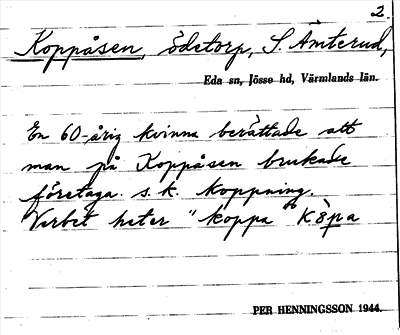 2.
Koppåsen, ödetorp, S. Ämterud,
Eda sn, Jösse hd, Värmlands län.
En 60-årig kvinna berättade att
man på Koppåsen brukade
företaga s.k. koppning.
Verbet heter "koppa
PER HENNINGSSON 1944.